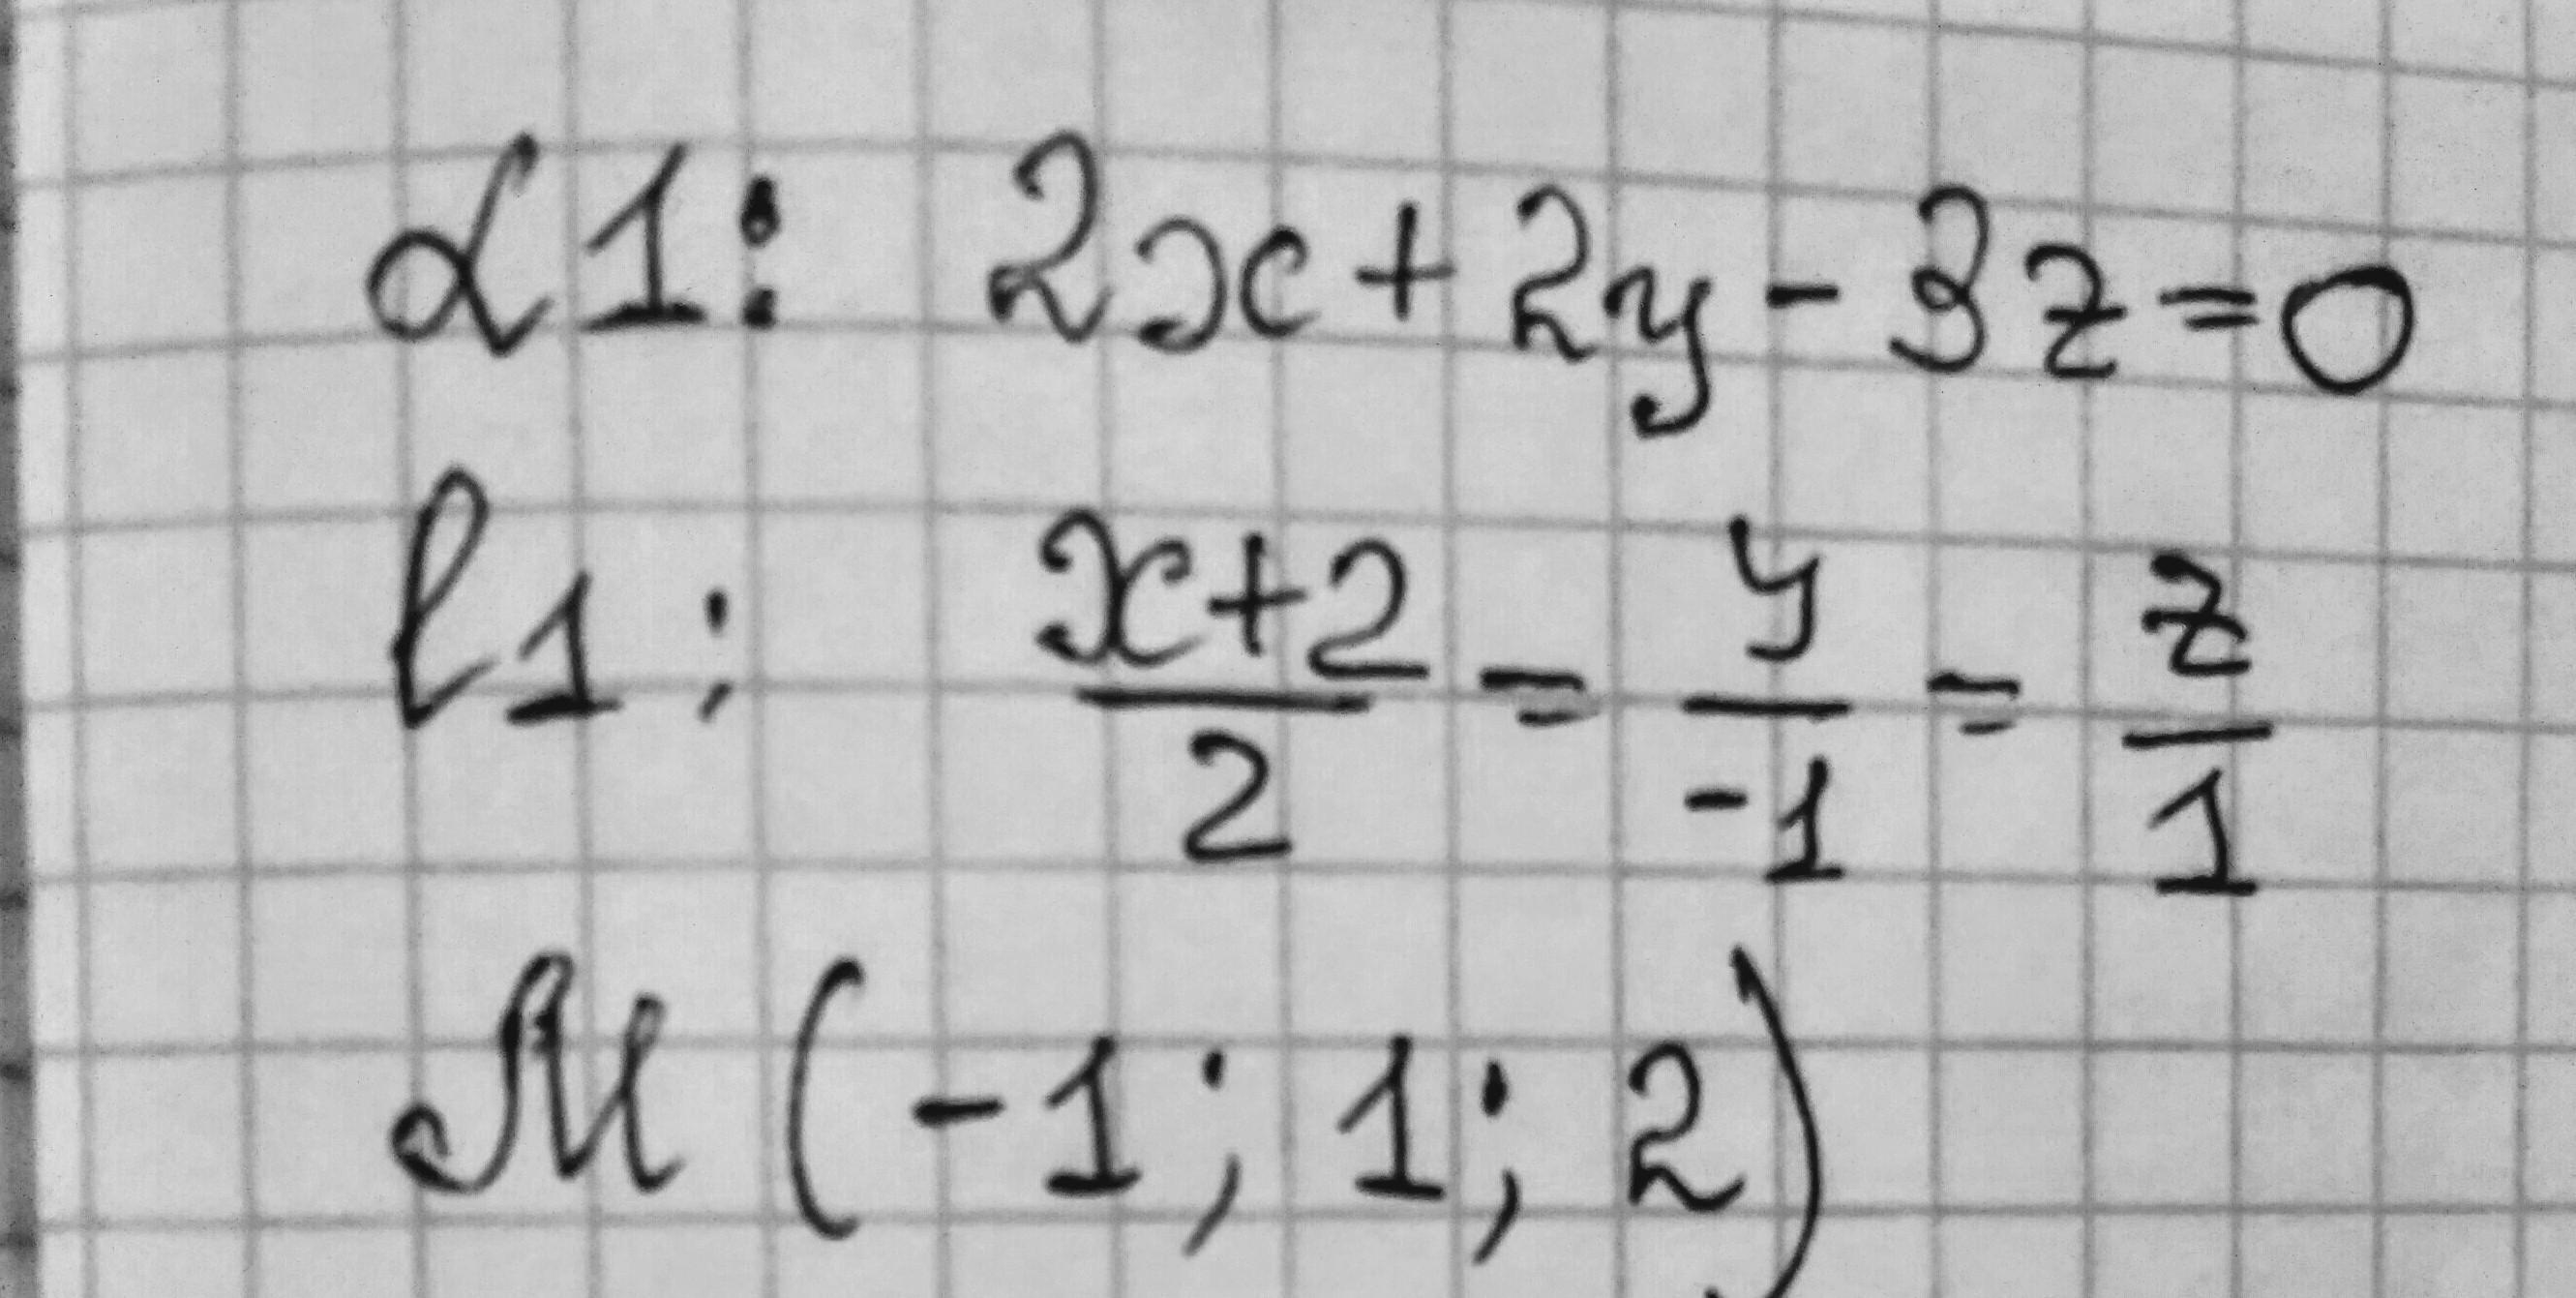 α1: 2x+2y-3z=0
l1: (x+2)/2 = y/-1 = z/1
M (-1; 1; 2)